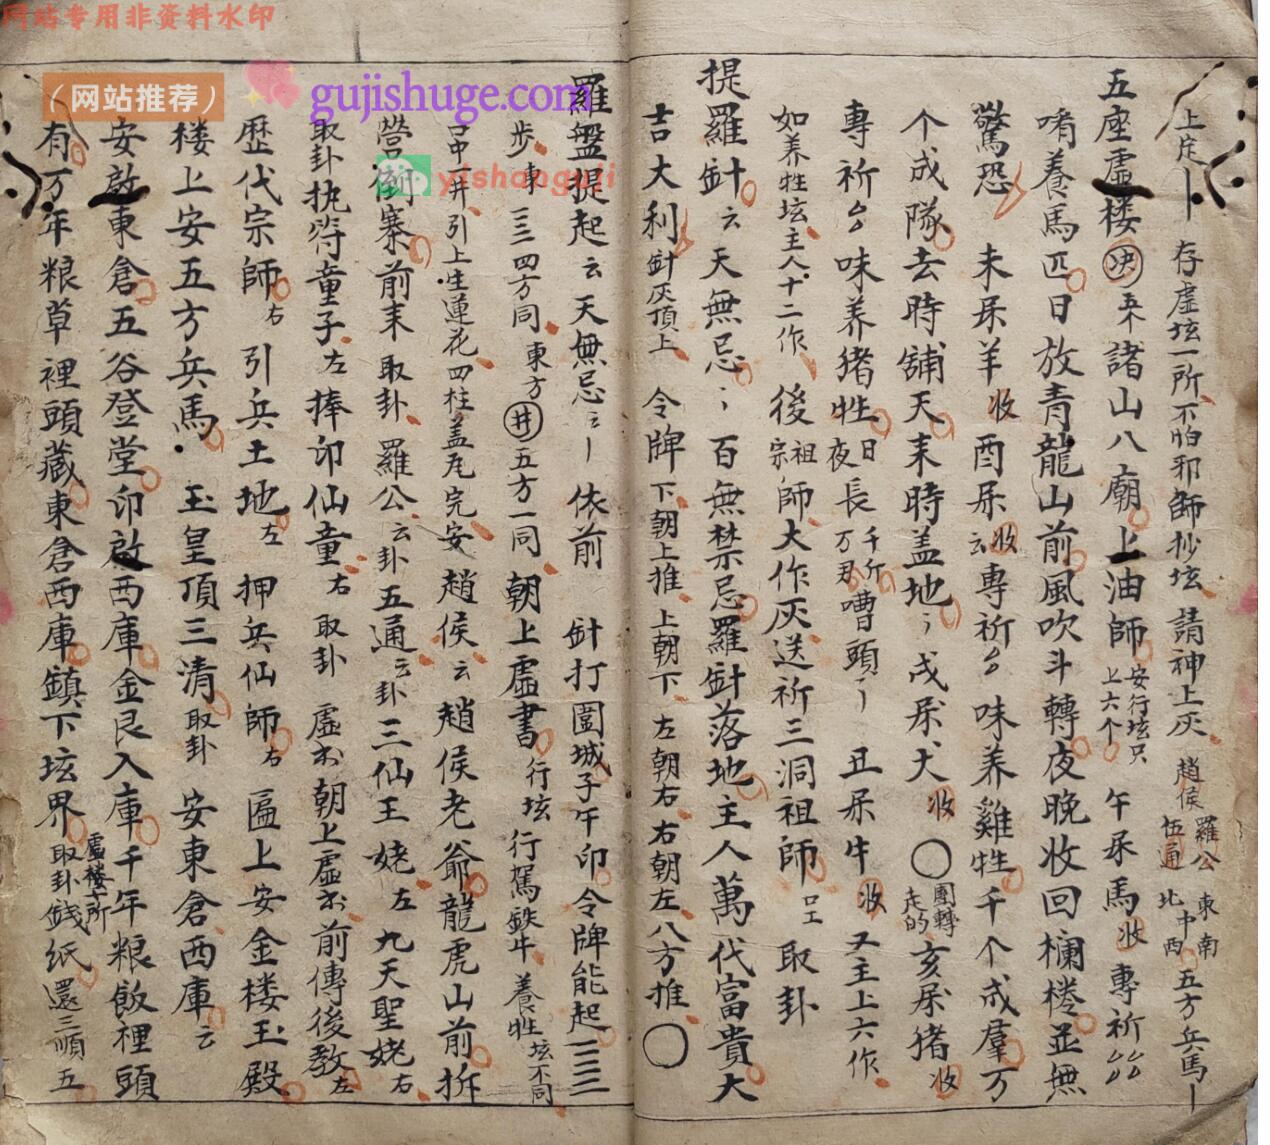 网站专用非资料水印
（网站推荐）
gujishuge.com
yishanguji
上定 存虚坛一所不怕邪師抄坛請神上灰 趙侯 羅公 伍通 東南 北中西 五方兵馬
五座虚楼 决 諸山八廟上油師 安行坛只 上六个 午屎馬 收 專祈
啃養馬匹日放青龍山前風吹斗轉夜晚收回欄棬並無
驚恐 未屎羊 收 酉屎 收 云 專祈 味养雞牲千个成羣万
个成隊去時舖天末時盖地 戌屎犬 收 〇 團轉 走的 亥屎猪 收
專祈 味养猪牲 日夜長 千斤 万 嘈頭 丑屎牛 收 又主上六作
如养牲坛主人十二作 後 祖宗 師大作灰送祈三洞祖師 取卦
提羅針 云 天無忌 百無禁忌羅針落地主人萬代富貴大
吉大利 針灰頂上 令牌 下朝上推 上朝下 左朝右 右朝左 八方推 〇
羅盤提起 云 天無忌 云 依前 針打圍城子午印令牌能起 一二三
步 東 一二三四方同 東方 井 五方一同 朝上虚書 行坛 行駕鉄牛 養牲坛不同
中一井引上生蓮花四柱盖瓦完安 趙侯 云 趙侯老爺龍虎山前拆
營倒寨前末 取卦 羅公 云卦 五通 云卦 三仙王姥 左 九天聖姥 右
取卦 执符童子 左 捧印仙童 右 取卦 虚 朝上虚 前傳後教 左
歷代宗師 右 引兵土地 左 押兵仙師 右 匾上安金楼玉殿
楼上安五方兵馬 玉皇頂三清 取卦 安東倉西庫 云
安啟東倉五谷登堂印啟西庫金艮入庫千年粮飯裡頭
有万年粮草裡頭藏東倉西庫鎮下坛界 取卦 虚楼一所 錢纸還三順五